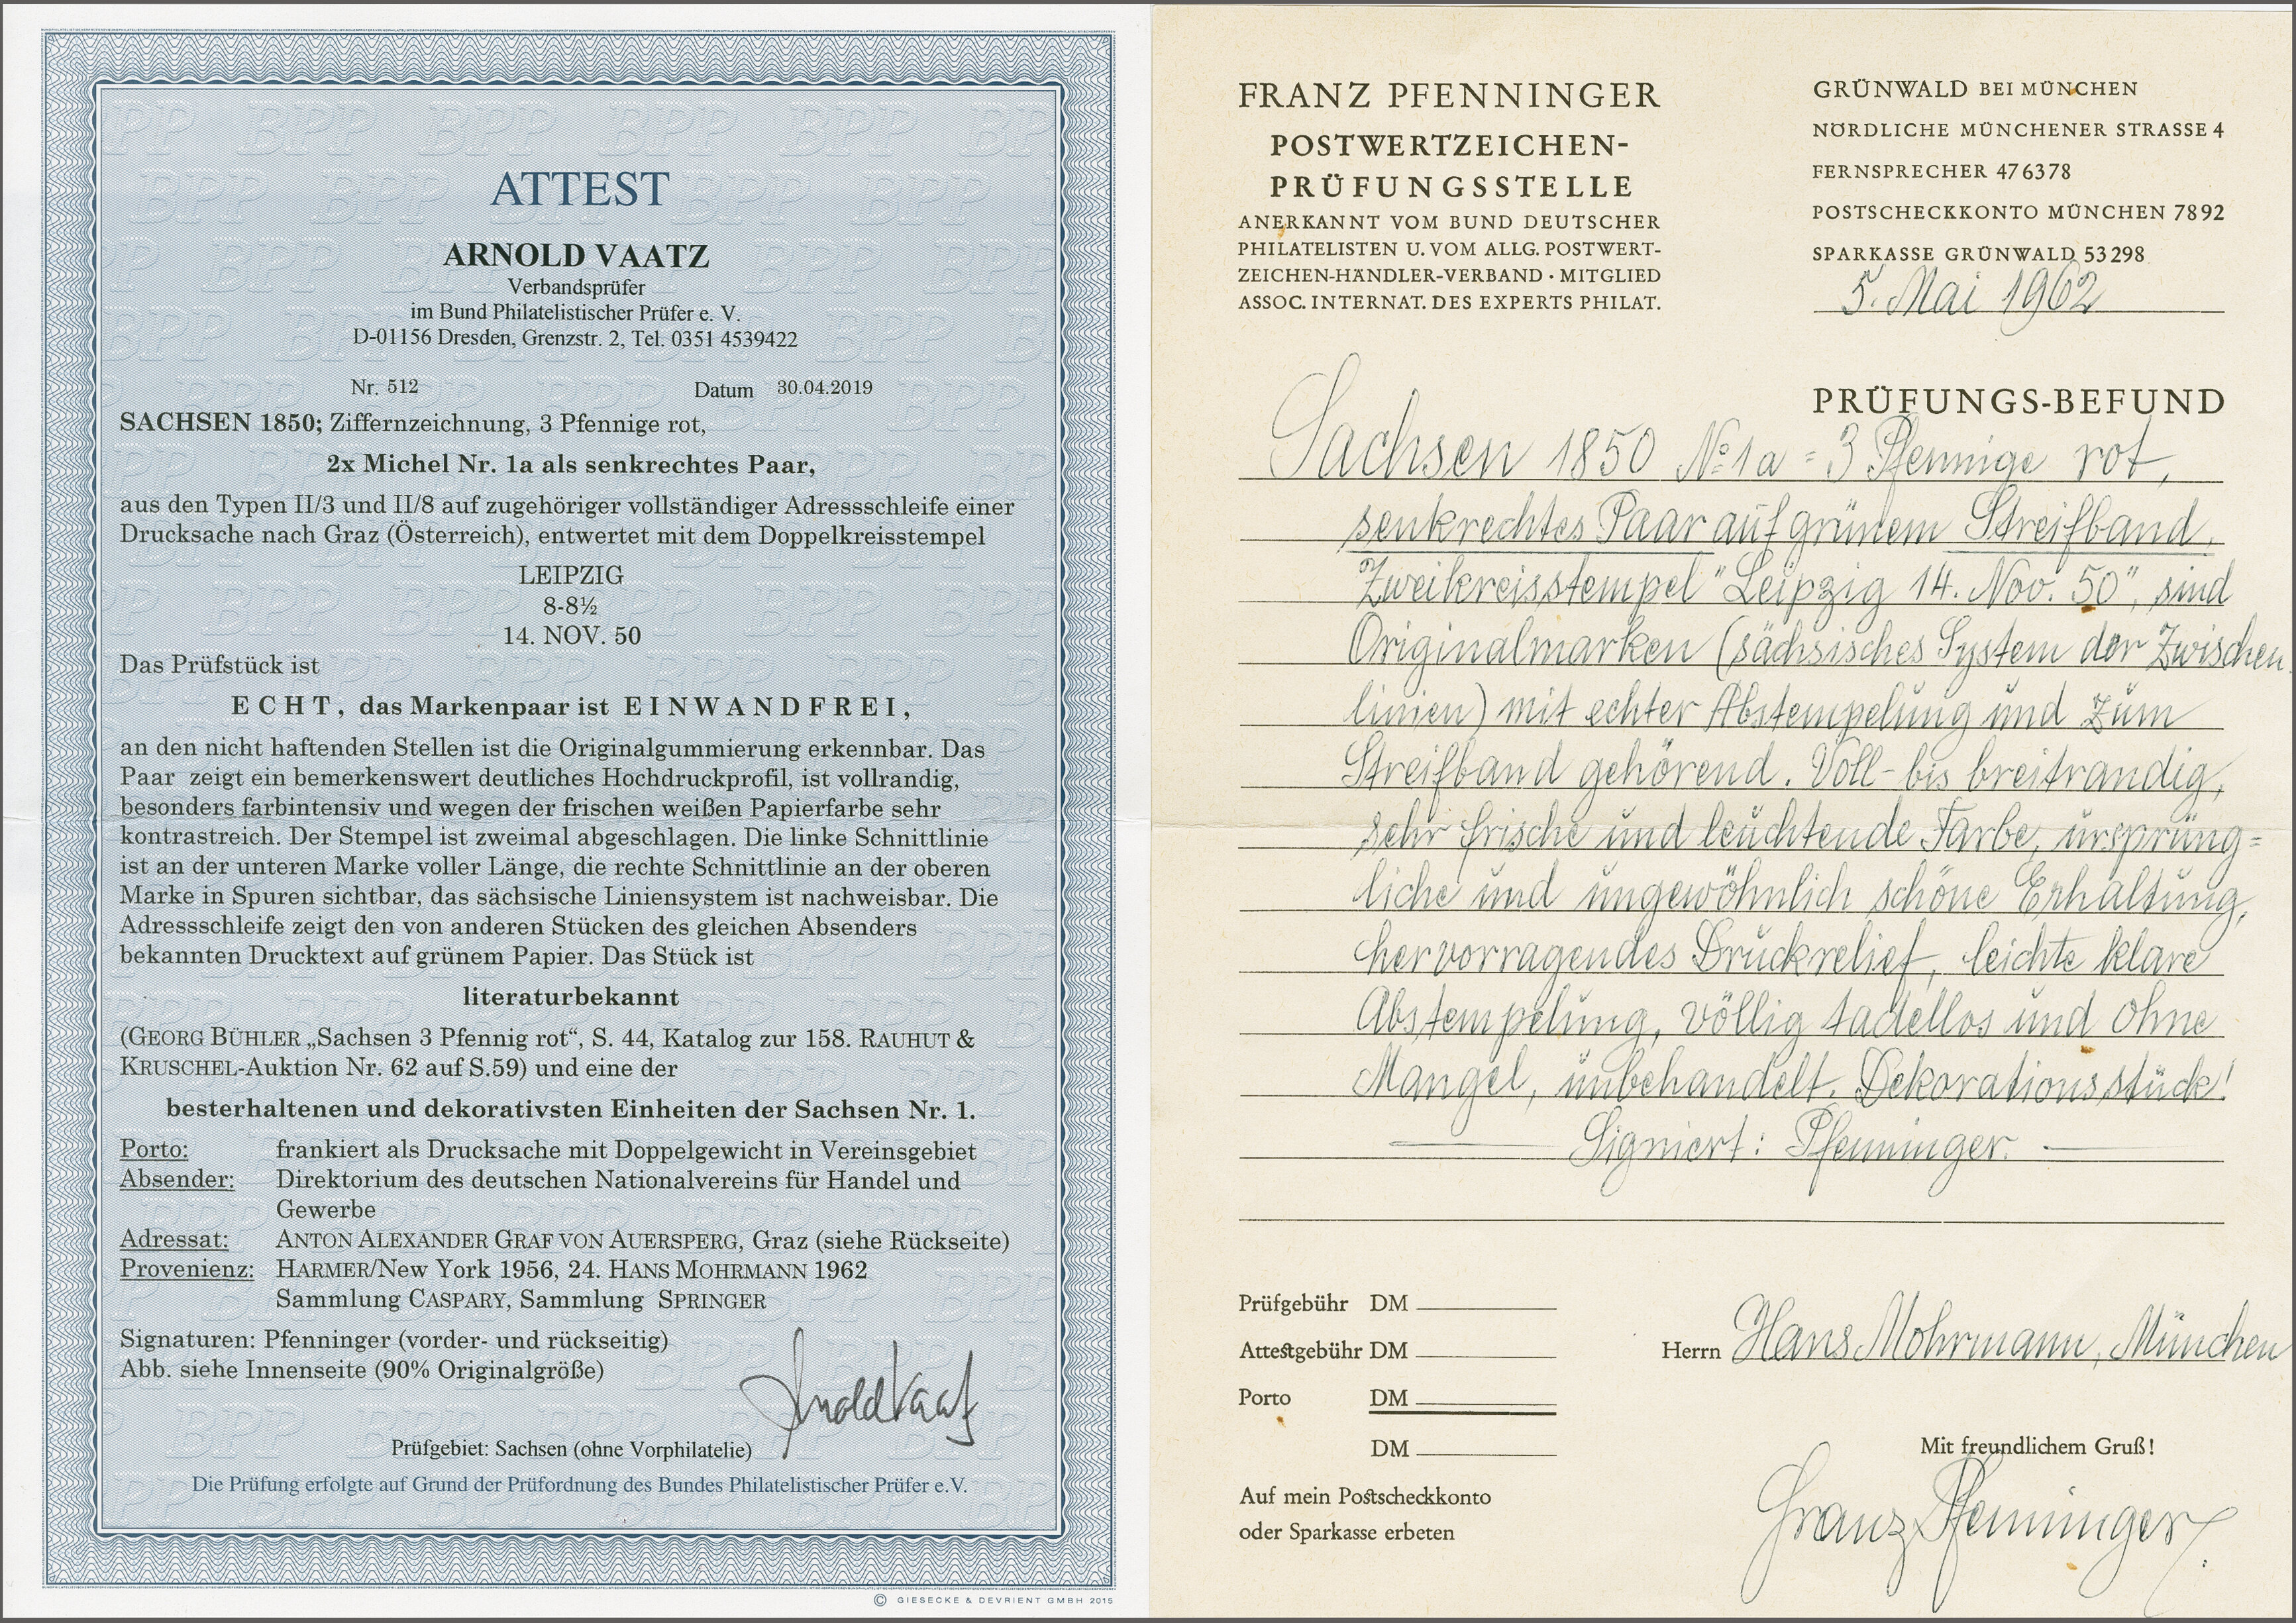 ATTEST
ARNOLD VAATZ
Verbandsprüfer
im Bund Philatelistischer Prüfer e. V.
D-01156 Dresden, Grenzstr. 2, Tel. 0351 4539422
Nr. 512 Datum 30.04.2019
SACHSEN 1850; Ziffernzeichnung, 3 Pfennige rot,
2x Michel Nr. 1a als senkrechtes Paar,
aus den Typen II/3 und II/8 auf zugehöriger vollständiger Adressschleife einer
Drucksache nach Graz (Österreich), entwertet mit dem Doppelkreisstempel
LEIPZIG
8-8½
14. NOV. 50
Das Prüfstück ist
ECHT, das Markenpaar ist EINWANDFREI,
an den nicht haftenden Stellen ist die Originalgummierung erkennbar. Das
Paar zeigt ein bemerkenswert deutliches Hochdruckprofil, ist vollrandig,
besonders farbintensiv und wegen der frischen weißen Papierfarbe sehr
kontrastreich. Der Stempel ist zweimal abgeschlagen. Die linke Schnittlinie
ist an der unteren Marke voller Länge, die rechte Schnittlinie an der oberen
Marke in Spuren sichtbar, das sächsische Liniensystem ist nachweisbar. Die
Adressschleife zeigt den von anderen Stücken des gleichen Absenders
bekannten Drucktext auf grünem Papier. Das Stück ist
literaturbekannt
(GEORG BÜHLER „Sachsen 3 Pfennig rot“, S. 44, Katalog zur 158. RAUHUT &
KRUSCHEL-Auktion Nr. 62 auf S.59) und eine der
besterhaltenen und dekorativsten Einheiten der Sachsen Nr. 1.
Porto: frankiert als Drucksache mit Doppelgewicht in Vereinsgebiet
Absender: Direktorium des deutschen Nationalvereins für Handel und
Gewerbe
Adressat: ANTON ALEXANDER GRAF VON AUERSPERG, Graz (siehe Rückseite)
Provenienz: HARMER/New York 1956, 24. HANS MOHRMANN 1962
Sammlung CASPARY, Sammlung SPRINGER
Signaturen: Pfenninger (vorder- und rückseitig)
Abb. siehe Innenseite (90% Originalgröße)
Arnold Vaatz
Prüfgebiet: Sachsen (ohne Vorphilatelie)
Die Prüfung erfolgte auf Grund der Prüfordnung des Bundes Philatelistischer Prüfer e.V.
© GIESECKE & DEVRIENT GMBH 2015
FRANZ PFENNINGER
POSTWERTZEICHEN-
PRÜFUNGSSTELLE
ANERKANNT VOM BUND DEUTSCHER
PHILATELISTEN U. VOM ALLG. POSTWERT-
ZEICHEN-HÄNDLER-VERBAND · MITGLIED
ASSOC. INTERNAT. DES EXPERTS PHILAT.
GRÜNWALD BEI MÜNCHEN
NÖRDLICHE MÜNCHENER STRASSE 4
FERNSPRECHER 476378
POSTSCHECKKONTO MÜNCHEN 7892
SPARKASSE GRÜNWALD 53298
5. Mai 1962
PRÜFUNGS-BEFUND
Sachsen 1850 No 1a = 3 Pfennige rot,
senkrechtes Paar auf grünem Streifband,
Zweikreisstempel "Leipzig 14. Nov. 50", sind
Originalmarken (sächsisches System der Zwischen
linien) mit echter Abstempelung und zum
Streifband gehörend. Voll- bis breitrandig,
sehr frische und leuchtende Farbe, ursprüng=
liche und ungewöhnlich schöne Erhaltung,
hervorragendes Druckrelief, leichte klare
Abstempelung, völlig tadellos und ohne
Mangel, unbehandelt. Dekorationsstück!
Signiert: Pfenninger.
Prüfgebühr DM
Attestgebühr DM
Porto DM
DM
Herrn Hans Mohrmann, München
Auf mein Postscheckkonto
oder Sparkasse erbeten
Mit freundlichem Gruß!
Franz Pfenninger.